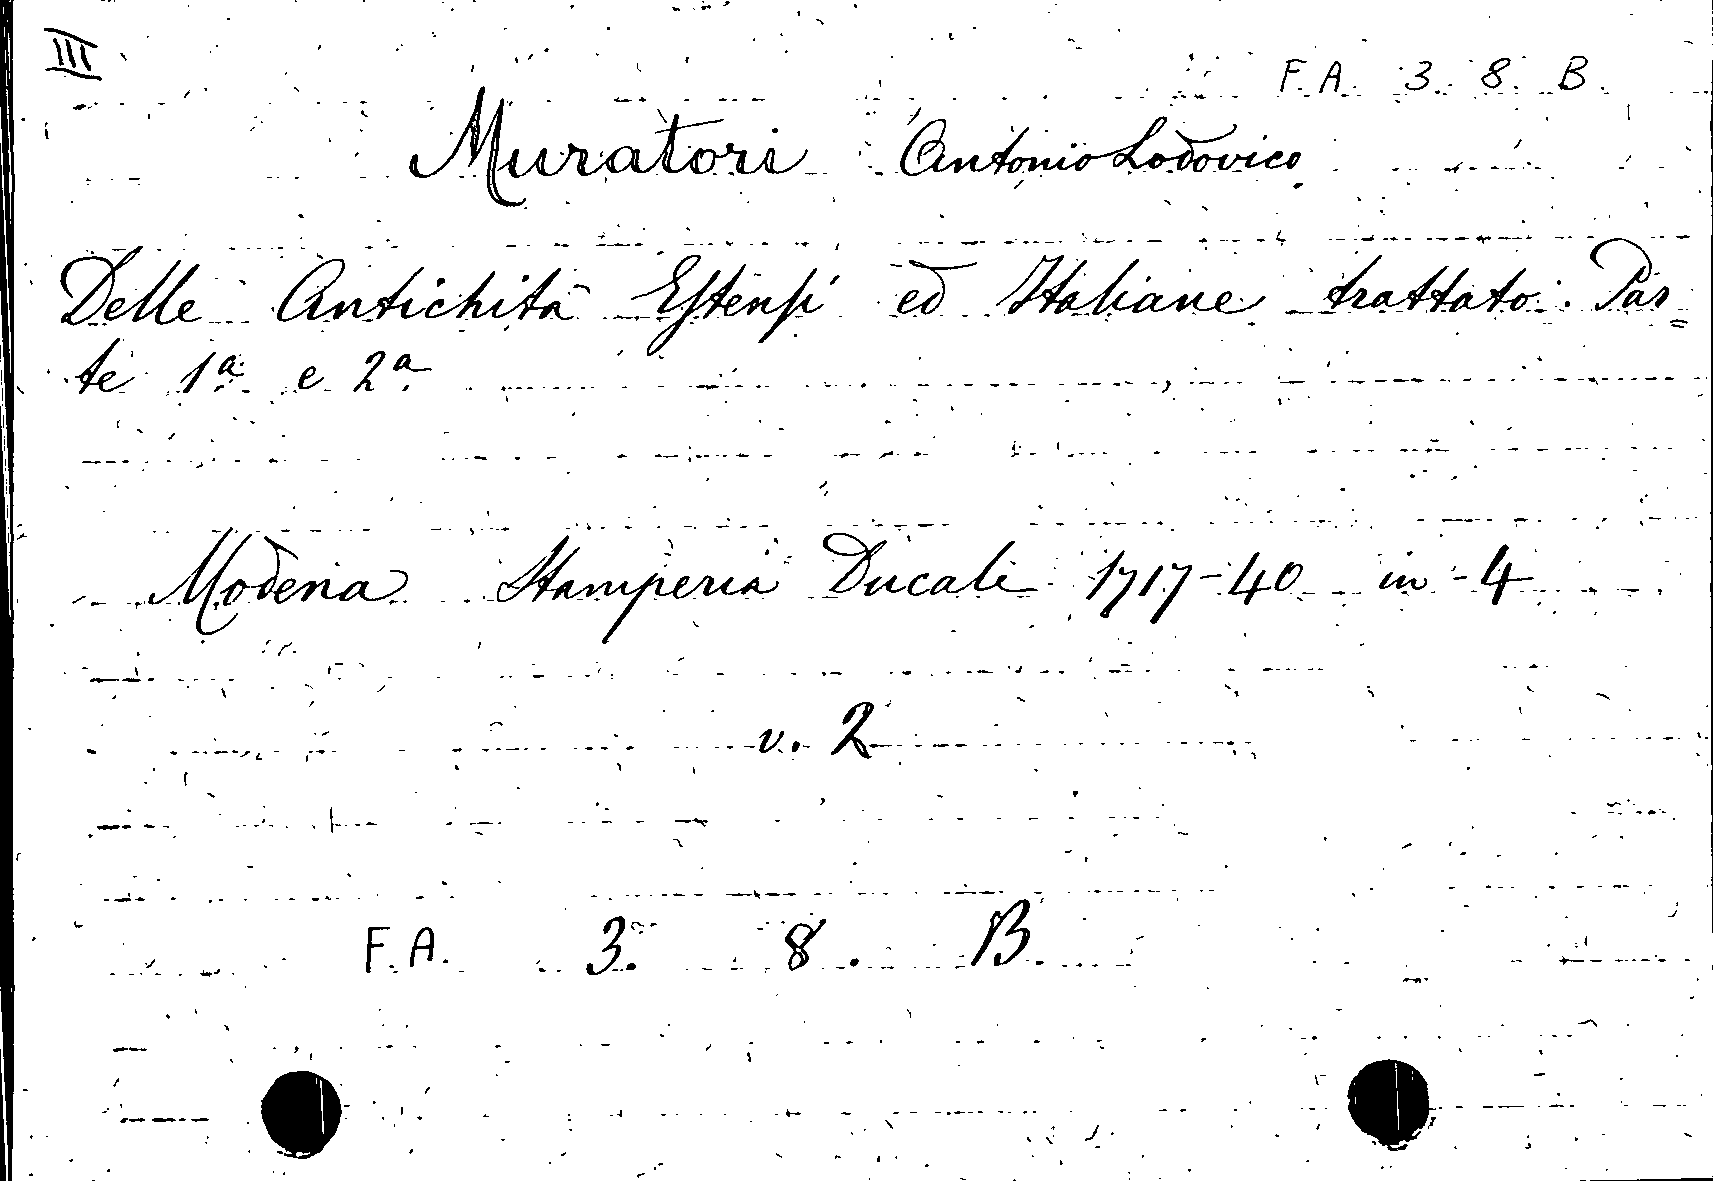 III
F. A. 3. 8. B.
Muratori Antonio Lodovico
Delle Antichità Estensi ed Italiane trattato. Par=
te 1a. e 2a.
Modena Stamperia Ducale 1717-40 in-4
v. 2
F. A. 3. 8. B.